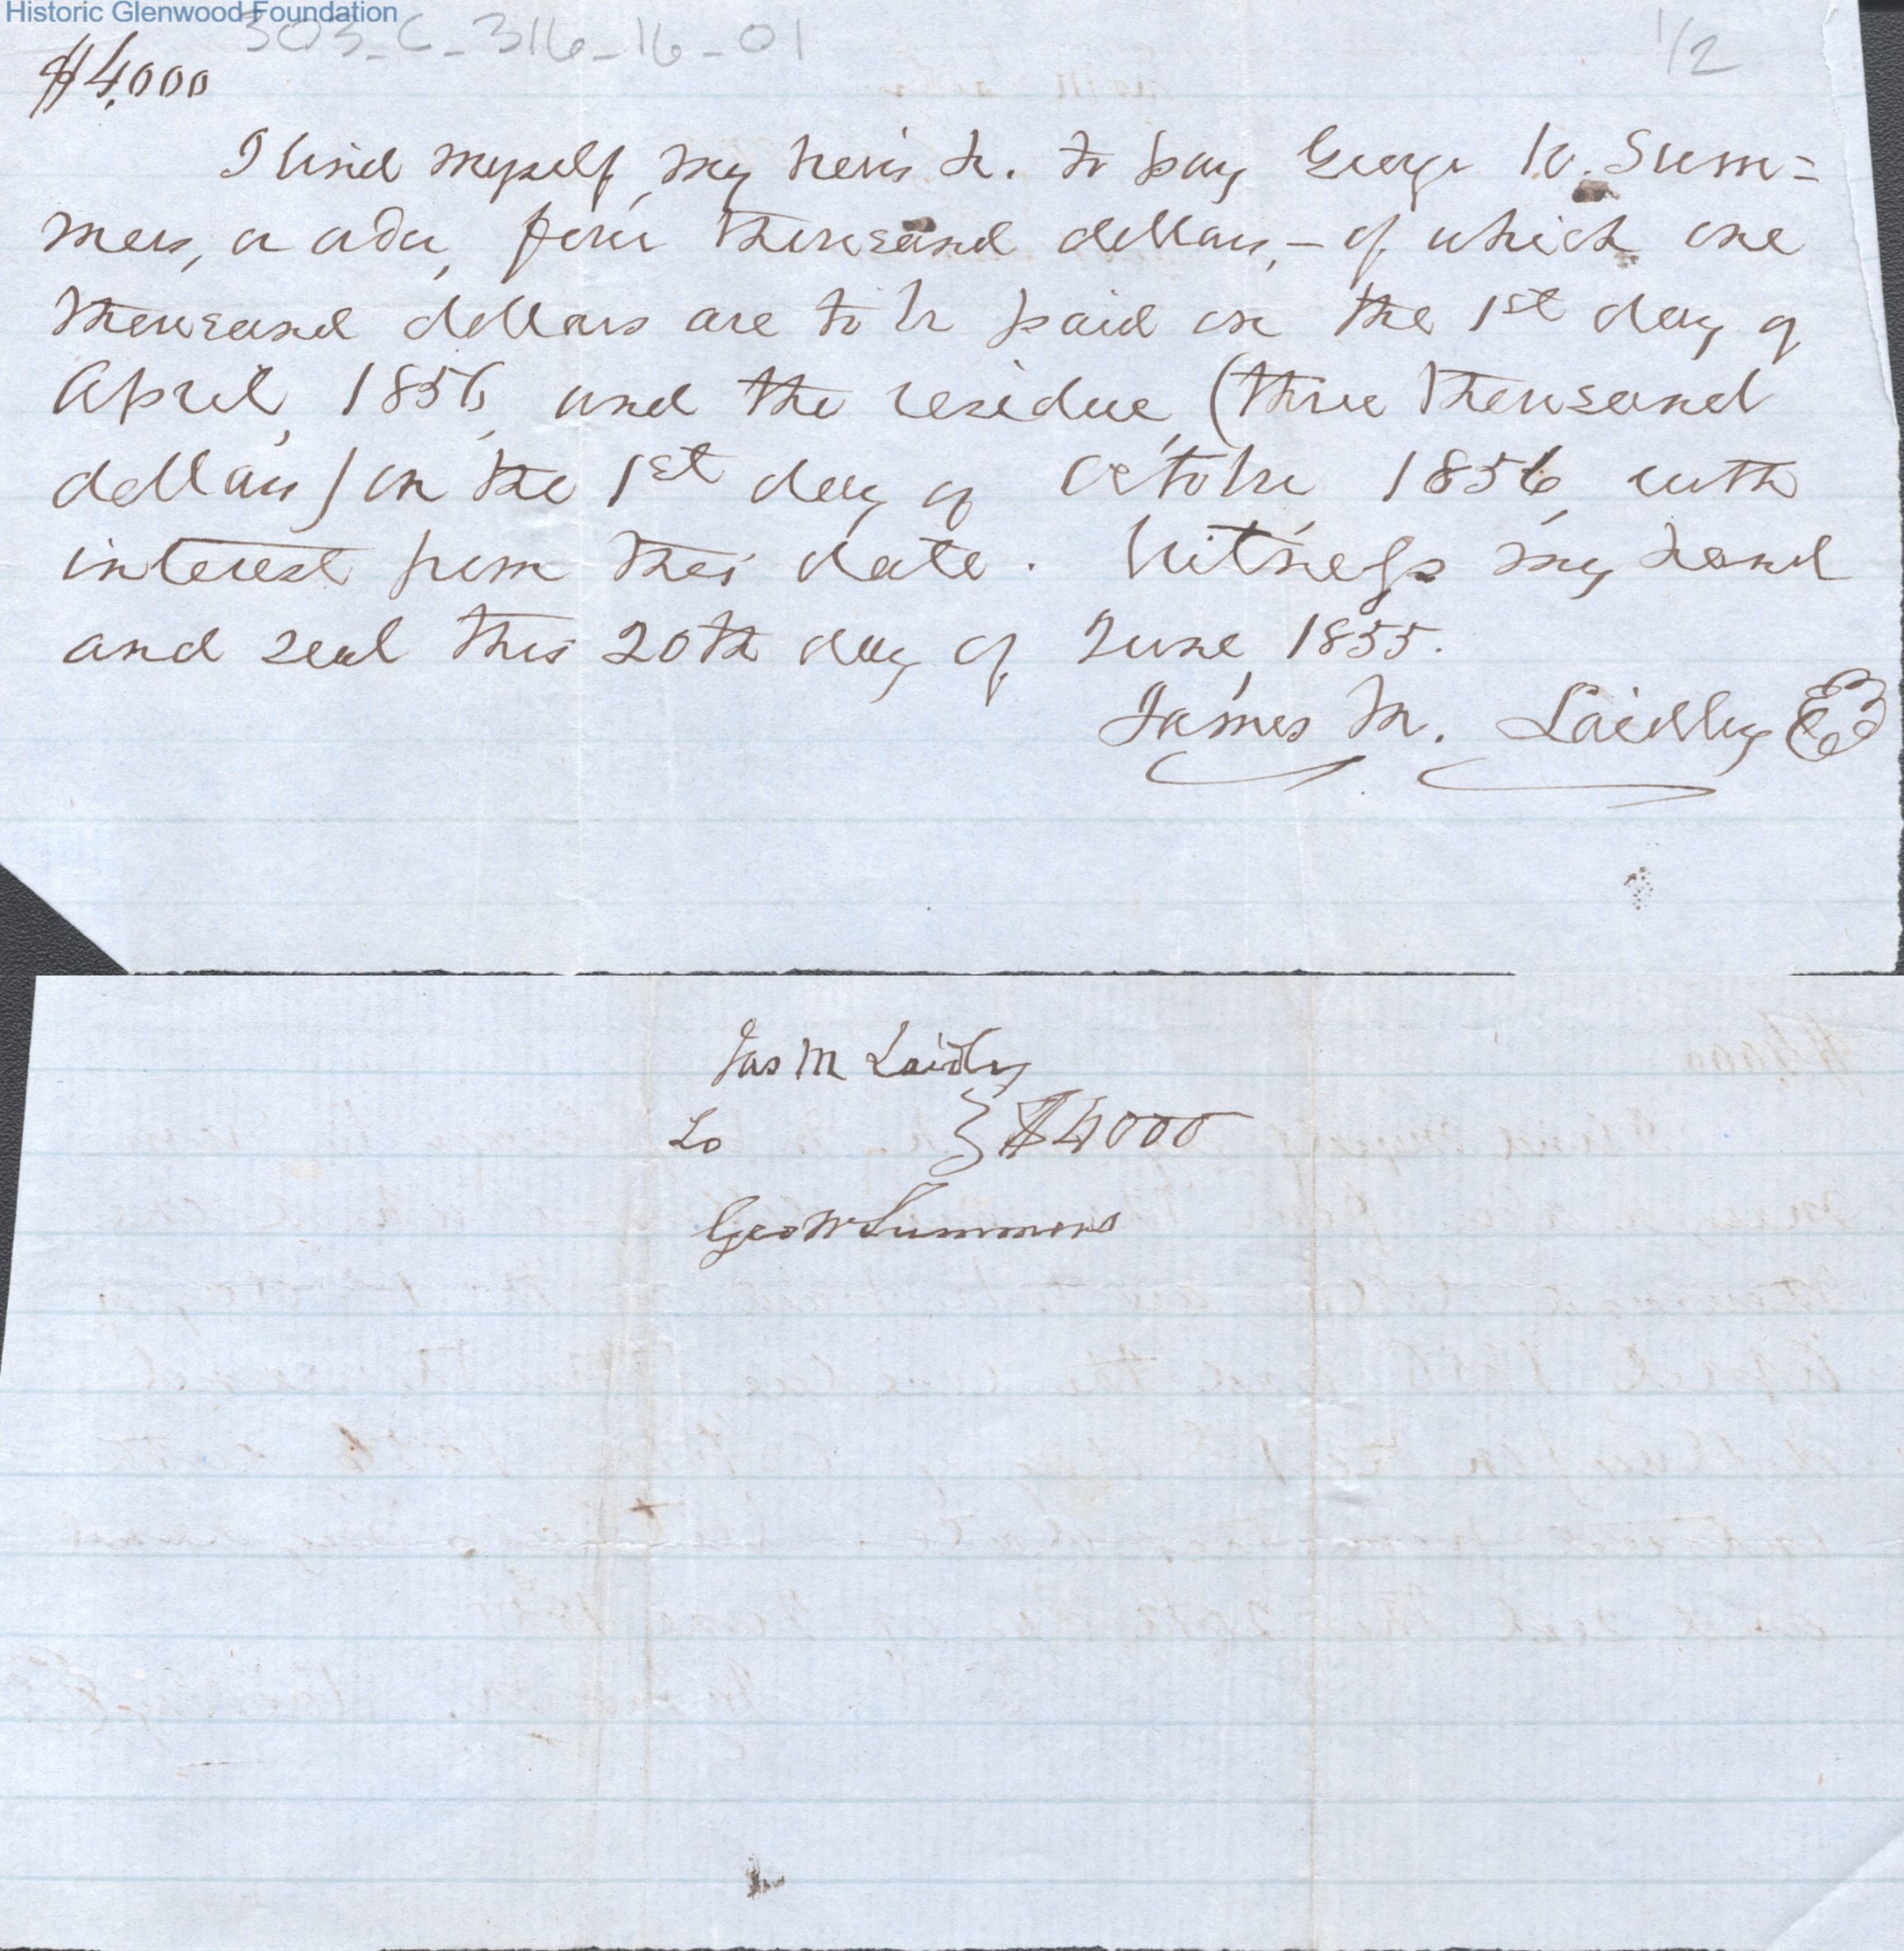 Historic Glenwood Foundation
303-C-316-16-01
1/2
$4,000
I bind myself, my heirs &c. to pay George W. Sum=
mers, or order, four thousand dollars, – of which one
thousand dollars are to be paid on the 1st day of
April, 1856, and the residue, (three thousand
dollars) on the 1st day of October 1856, with
interest from this date. Witness my hand
and seal this 20th day of June, 1855.
James M. Laidley
Jas M Laidley
To } $4000
Geo W Summers